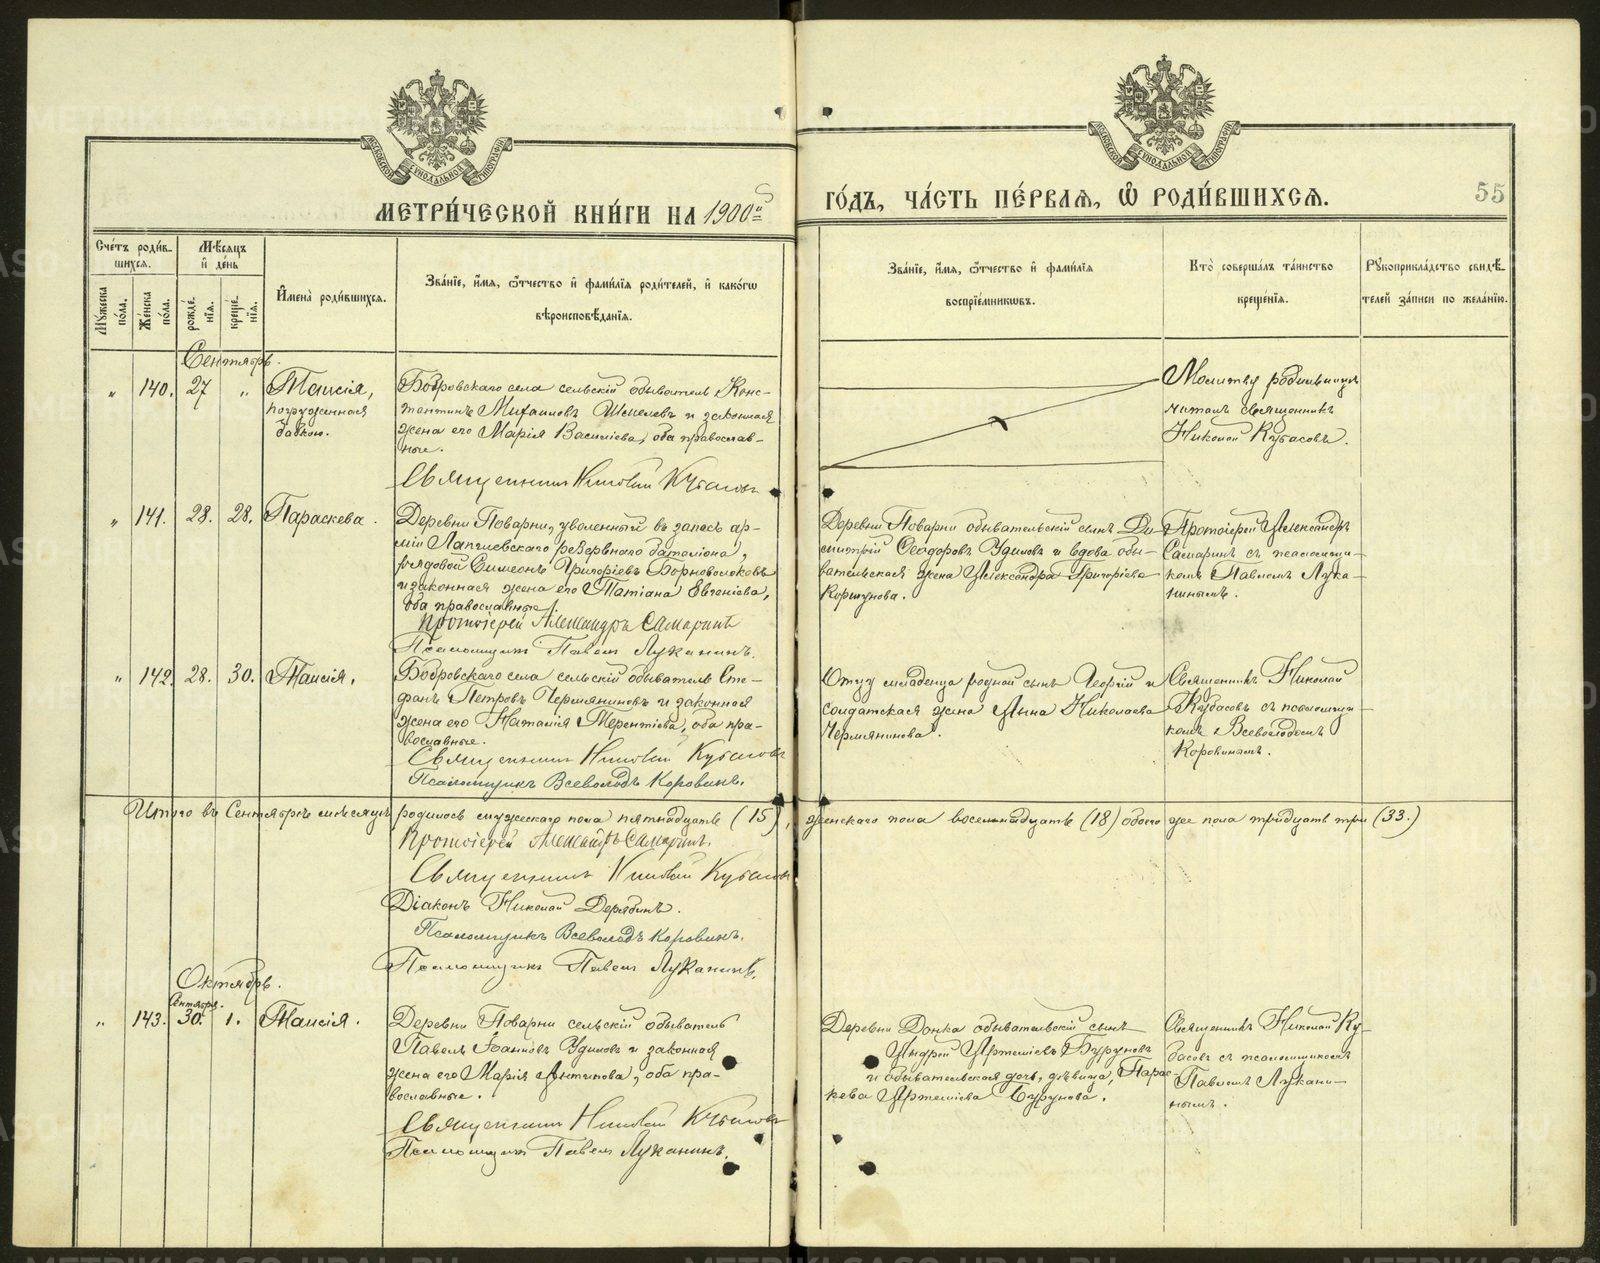 МЕТРИ́ЧЕСКОЙ КНИ́ГИ НА 1900й
ГО́ДЪ, ЧА́СТЬ ПЕ́РВАѦ, Ѡ҆ РОДИ́ВШИХСѦ.
55
Сче́тъ роди́в-
шихсѧ.
Мѣ́сѧцъ
и҆ де́нь
Мꙋ́жеска по́ла.
Же́нска по́ла.
рожде́нїѧ.
креще́нїѧ.
И҆мена̀ роди́вшихсѧ.
Зва́нїе, и҆́мѧ, ѻ҆́тчество и҆ фами́лїѧ роди́телей, и҆ како́гѡ
вѣроисповѣ́данїѧ.
Зва́нїе, и҆́мѧ, ѻ҆́тчество и҆ фами́лїѧ
воспрїе́мникѡвъ.
Кто̀ соверша́лъ та́инство
креще́нїѧ.
Рꙋкоприкла́дство свидѣ́-
телей за́писи по жела́нїю.
Сентябрь.
" 140. 27 " Таисія,
погруженная
бабкою.
Бобровскаго села сельскій обыватель Конс-
тантинъ Михаиловъ Шмелевъ и законная
жена его Марія Василіева, оба православ-
ные.
Священникъ Николай Кубасовъ
Молитву родильницѣ
читалъ священникъ
Николай Кубасовъ.
" 141. 28. 28. Параскева.
Деревни Поварни, уволенный въ запасъ ар-
міи резервнаго баталіона,
рядовой Симеонъ Григоріевъ Борноволоковъ
и законная жена его Татіана Евгеніева,
оба православные.
Протоіерей Александръ Самаринъ
Псаломщикъ Павелъ Луканинъ.
Деревни Поварни обывательскій сынъ Ди-
митрій Ѳеодоровъ Удиловъ и вдова обы-
вательская жена Александра Григоріева
Коршунова.
Протоіерей Александръ
Самаринъ съ псаломщи-
комъ Павломъ Лука-
нинымъ.
" 142. 28. 30. Таисія.
Бобровскаго села сельскій обыватель Сте-
фанъ Петровъ Чермяниновъ и законная
жена его Наталія Терентіева, оба пра-
вославные.
Священникъ Николай Кубасовъ
Псаломщикъ Всеволодъ Коровинъ.
Отцу младенца родной сынъ Георгій и
солдатская жена Анна Николаева
Чермянинова.
Священникъ Николай
Кубасовъ съ псаломщи-
комъ Всеволодомъ
Коровинымъ.
Итого въ Сентябрѣ мѣсяцѣ родилось мужескаго пола пятнадцать (15), женскаго пола восемнадцать (18) обоего же пола тридцать три (33.)
Протоіерей Александръ Самаринъ.
Священникъ Николай Кубасовъ
Діаконъ Николай Дерябинъ.
Псаломщикъ Всеволодъ Коровинъ.
Псаломщикъ Павелъ Луканинъ.
Октябрь.
Сентября.
" 143. 30. 1. Таисія.
Деревни Поварни сельскій обыватель
Павелъ Іоанновъ Удиловъ и законная
жена его Марія Антипова, оба пра-
вославные.
Священникъ Николай Кубасовъ
Псаломщикъ Павелъ Луканинъ.
Деревни Донка обывательскій сынъ
Андрей Артеміевъ Буруновъ
и обывательская дочь, дѣвица, Парас-
кева Артеміева Бурунова.
Священникъ Николай Ку-
басовъ съ псаломщикомъ
Павломъ Лукани-
нымъ.